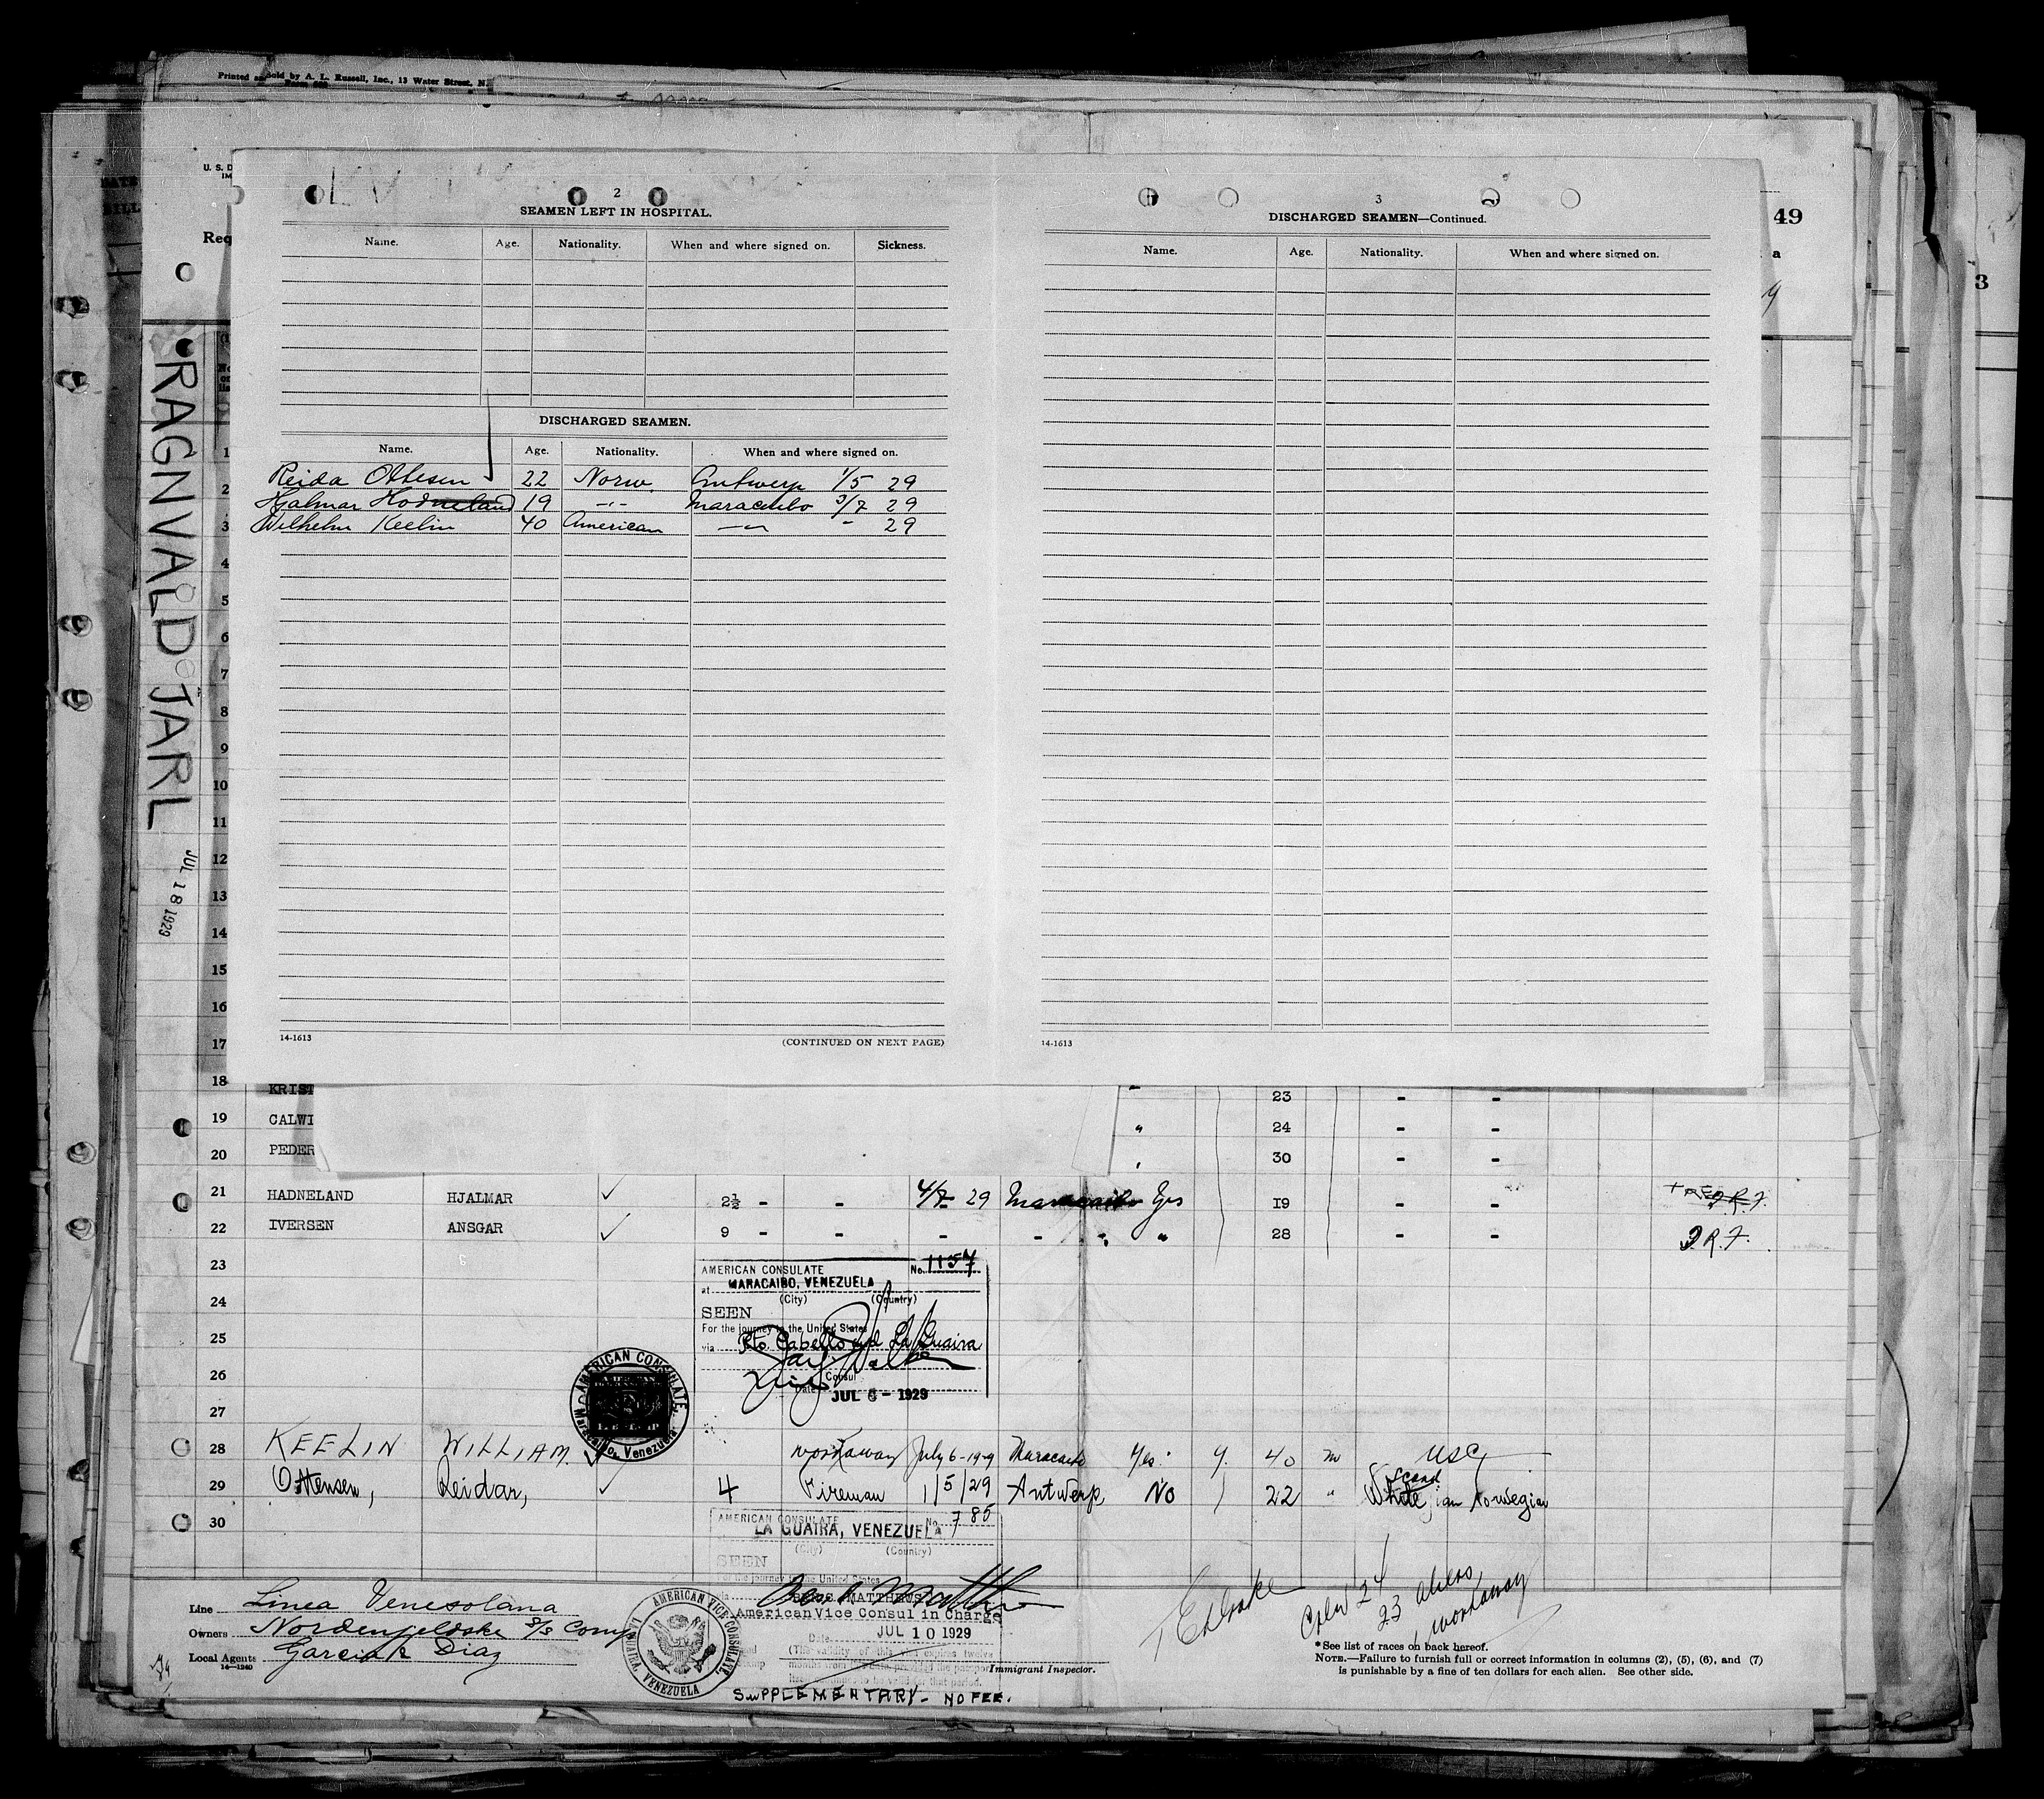 Printed and Sold by A. L. Russell, Inc., 13 Water Street, N.
U. S. D
IM
Req
49
a
3
RAGNVALD JARL
JUL 18 1929
2
SEAMEN LEFT IN HOSPITAL.
Name. Age. Nationality. When and where signed on. Sickness.
DISCHARGED SEAMEN.
Name. Age. Nationality. When and where signed on.
Reida Ottesen 22 Norw. Antwerp 1/5 29
Hjalmar Hodneland 19 -"- Maracaibo 3/7 29
Wilhelm Keelin 40 American -"- " 29
14-1613
(CONTINUED ON NEXT PAGE)
3
DISCHARGED SEAMEN—Continued.
Name. Age. Nationality. When and where signed on.
14-1613
1
2
3
4
5
6
7
8
9
10
11
12
13
14
15
16
17
18 KRIST 23 - -
19 CALWI " 24 - -
20 PEDER 30 - -
21 HADNELAND HJALMAR 2½ - - 4/7 29 Maracaibo Yes 19 - -
22 IVERSEN ANSGAR 9 - - - - " " 28 - - R. F.
23
24
25
26
27
AMERICAN CONSULATE No. 1157
at MARACAIBO, VENEZUELA
(City) (Country)
SEEN
For the journey to the United States
via Pto Cabello and La Guaira
Consul
Date JUL 6 - 1929
AMERICAN CONSULATE, Maracaibo, Venezuela
28 KEELIN WILLIAM. workaway July 6-1929 Maracaibo Yes. Y. 40 m USC
29 Ottensen, Reidar, 4 Fireman 1/5/29 Antwerp, No 22 " White Scand ian Norwegian
30
AMERICAN CONSULATE No. 785
LA GUAIRA, VENEZUELA
(City) (Country)
SEEN
For the journey to the United States
via
BEN C. MATTHEWS
American Vice Consul in Charge
Date JUL 10 1929
(The validity of this visa expires twelve
months from
SUPPLEMENTARY - NO FEE.
AMERICAN VICE CONSULATE, LA GUAIRA, VENEZUELA
Line Linea Venezolana
Owners Nordenfjeldske S/S Comp
Local Agents Garcia & Diaz
14—1240
Immigrant Inspector.
24
23 aliens
1 workaway
*See list of races on back hereof.
NOTE.—Failure to furnish full or correct information in columns (2), (5), (6), and (7)
is punishable by a fine of ten dollars for each alien. See other side.